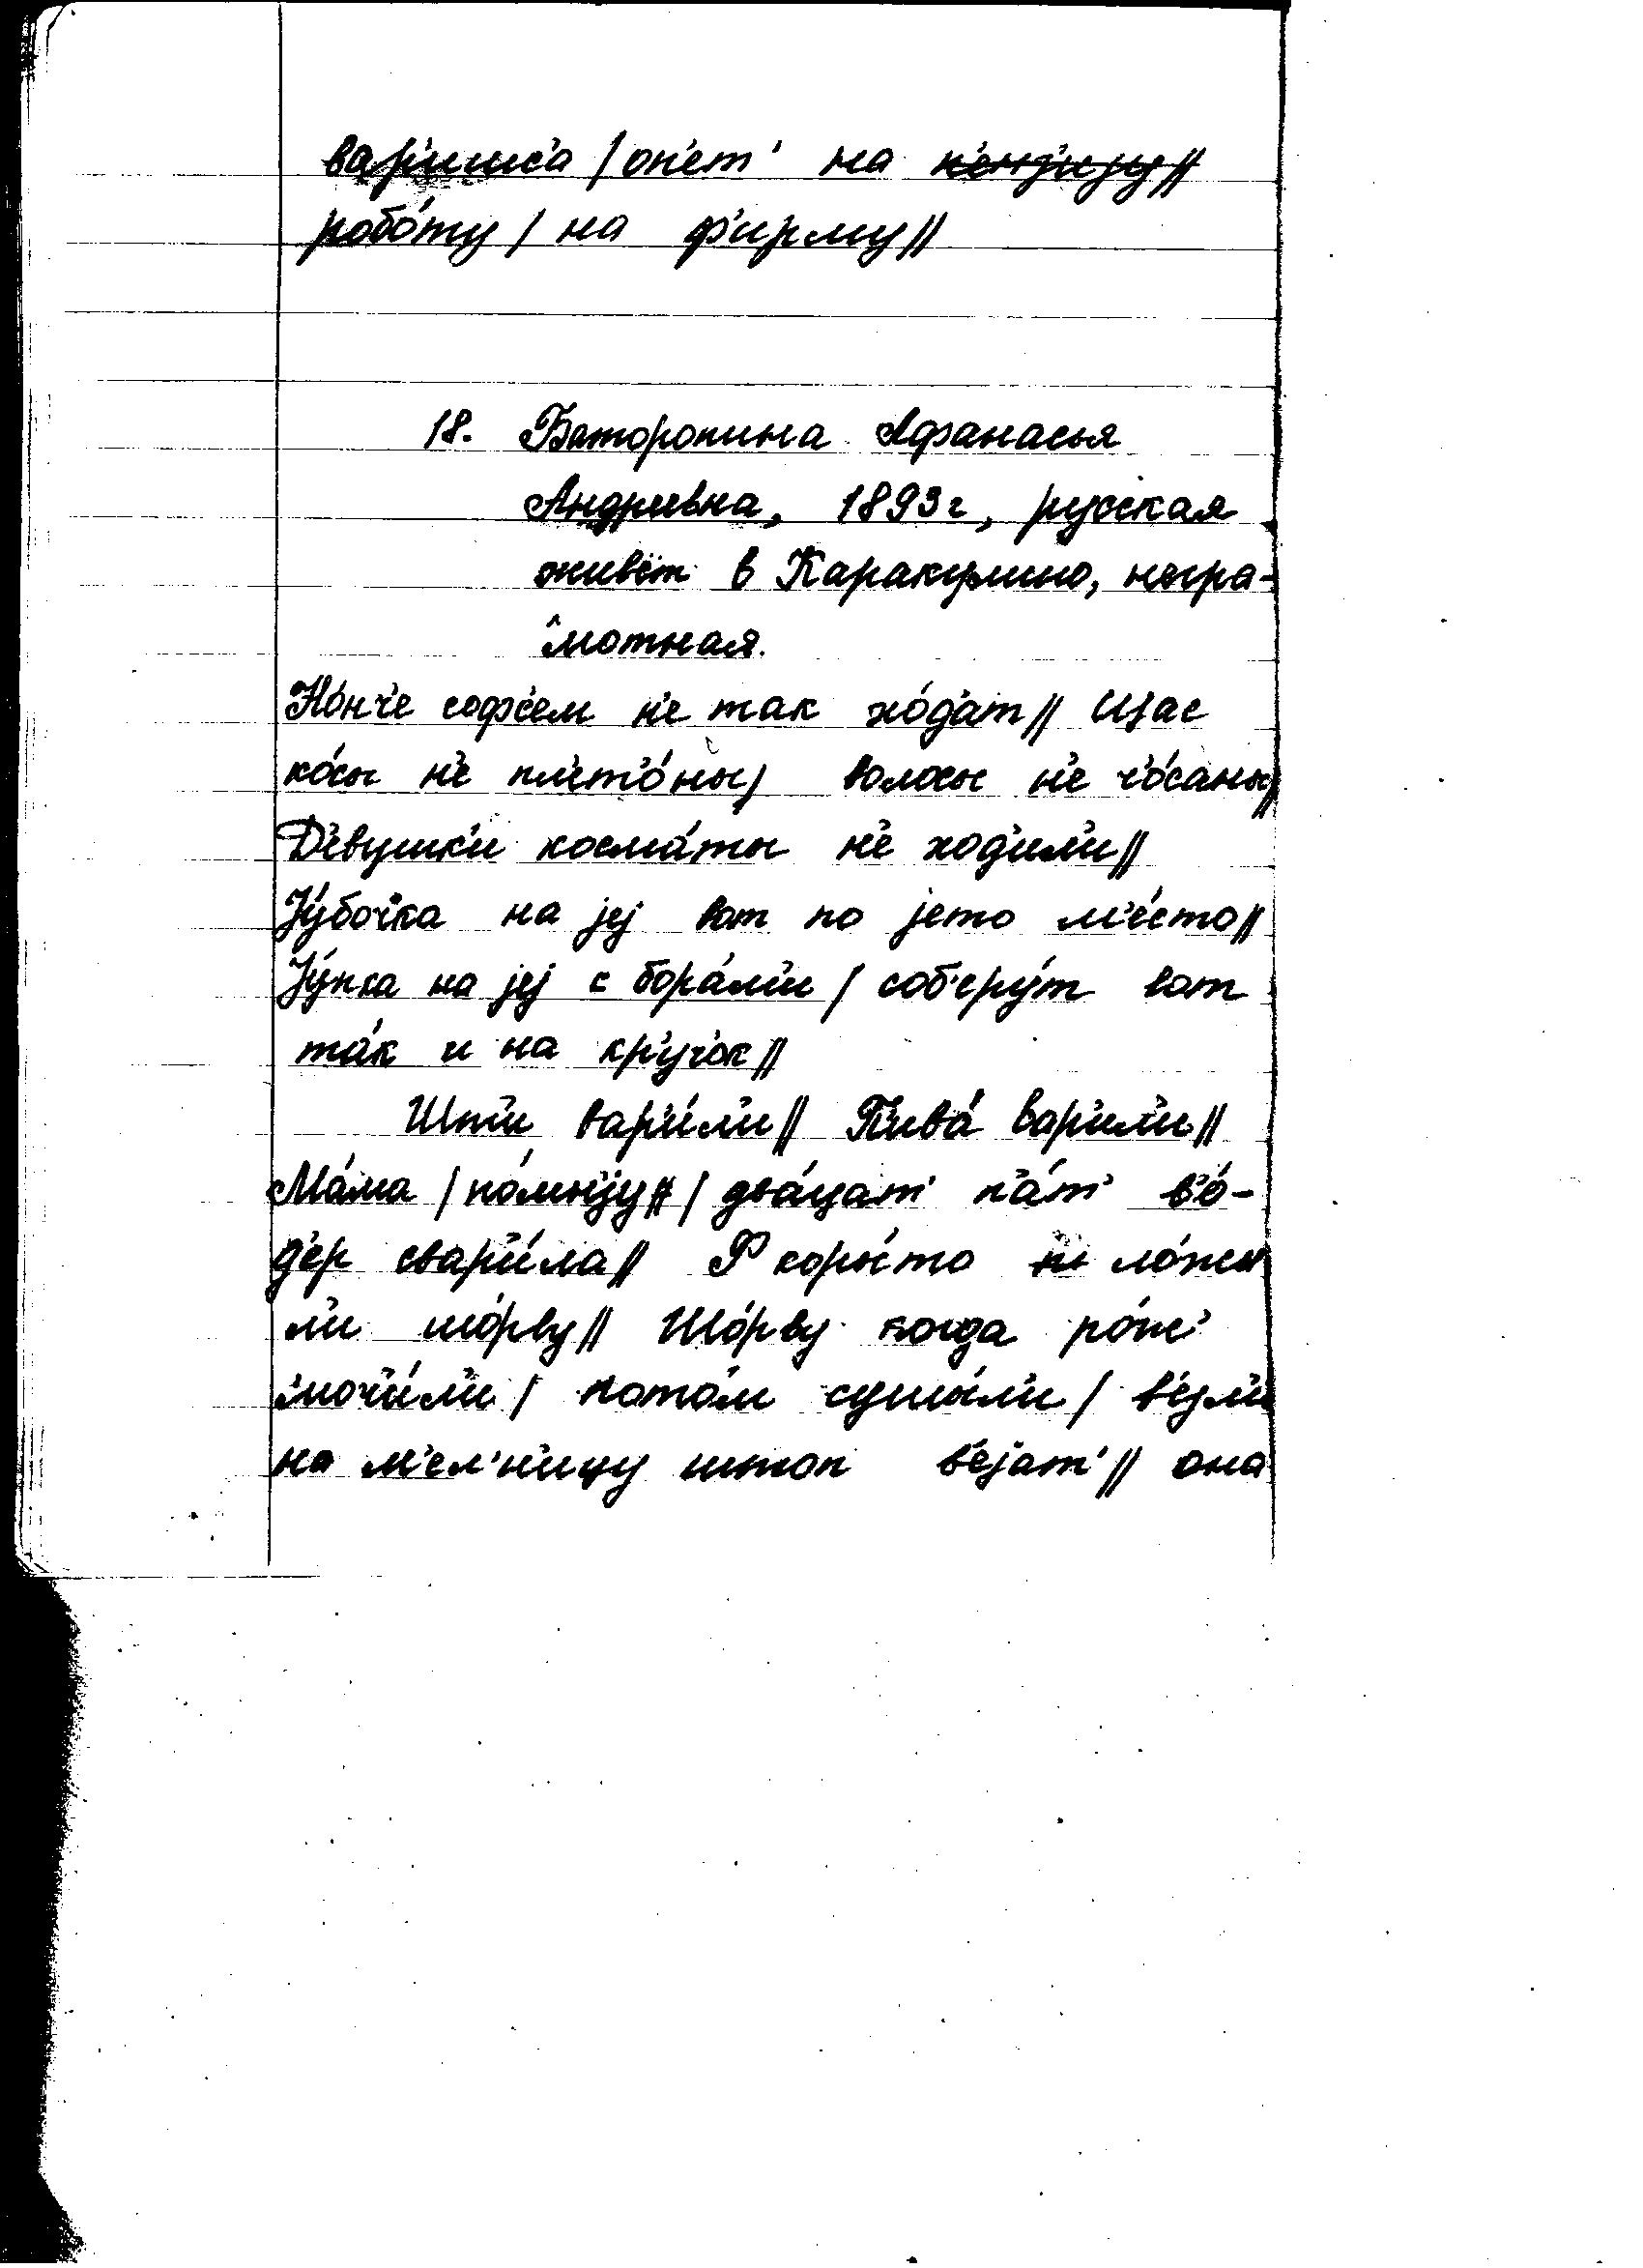 вар'ишс'а / оп'ет' на п'енз'ију //
робо́ту / на ф'ирму //
18. Баторопина Афанасья
Андреевна, 1893г, русская
живёт в Каракулино, негра-
мотная.
Но́нч'е софс'ем н'е так хо́д'ат // Щас
ко́сы н'е пл'ет'о́ны / волосы н'е ч'о́саны //
Д'евушк'и косма́ты н'е ход'ил'и //
Jу́боч'ка на jеj вот по jето м'е́сто //
Jу́пка на jеj с бора́м'и / соб'еру́т вот
та́к и на кр'уч'ок //
Шт'и вар'и́л'и // П'ива́ вар'ил'и //
Ма́ма / по́мн'јy / два́цат' п'а́т' в'о́-
д'ер свар'и́ла // Ф коры́то ло́жы
л'и шо́рву // Шо́рву когда ро́ж'
моч'и́л'и / пото́м сушы́л'и / в'езл'и
на м'ел'н'ицу штоп в'е́jат' // она